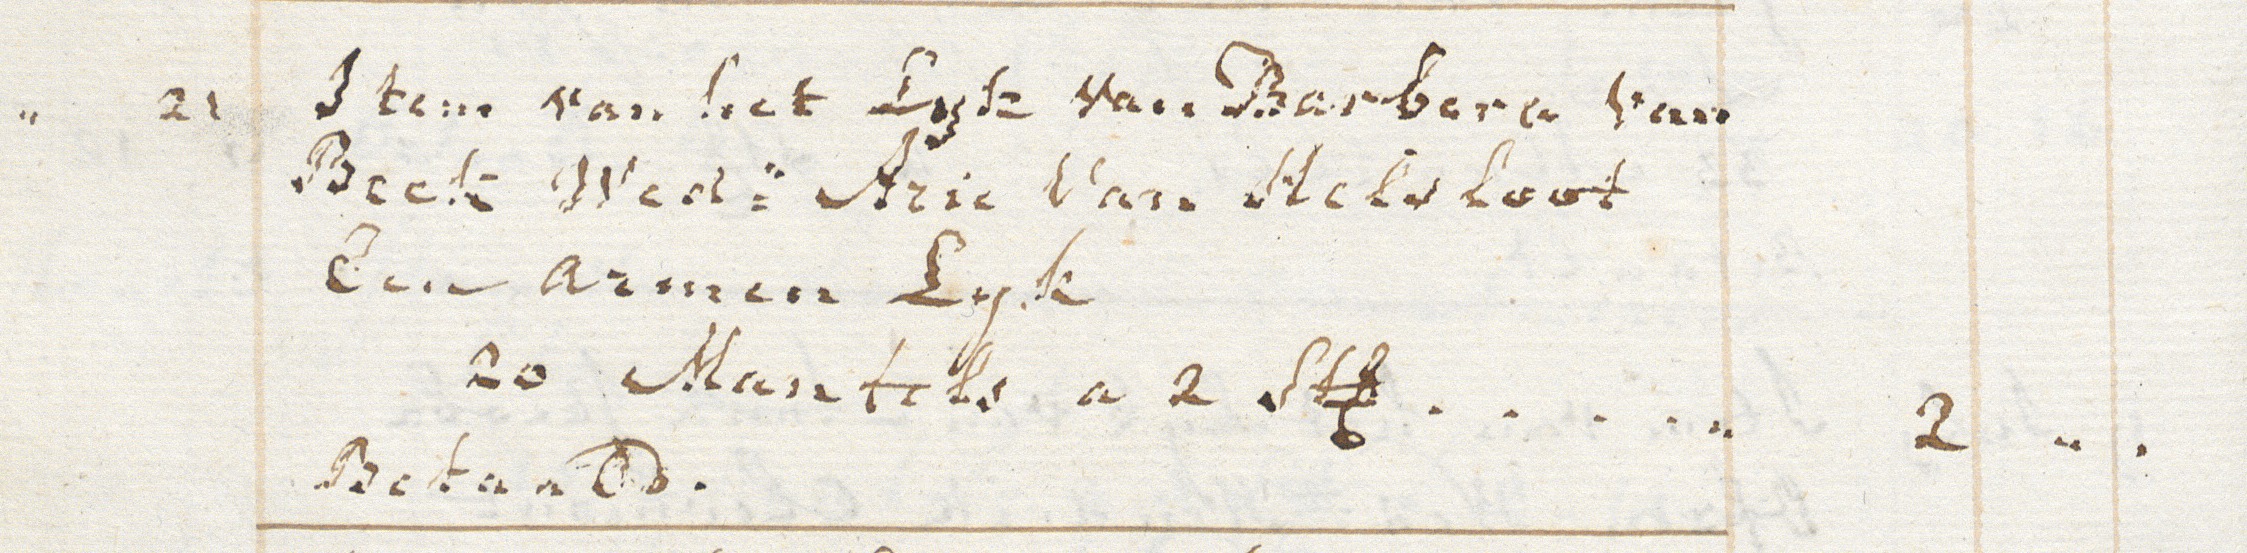 " 21 Item van het Lyk van Barbera van
Beek Wed:e Arie Van Melsloot
Een armen Lyk
20 Mantels a 2 St . . . . " 2 " .